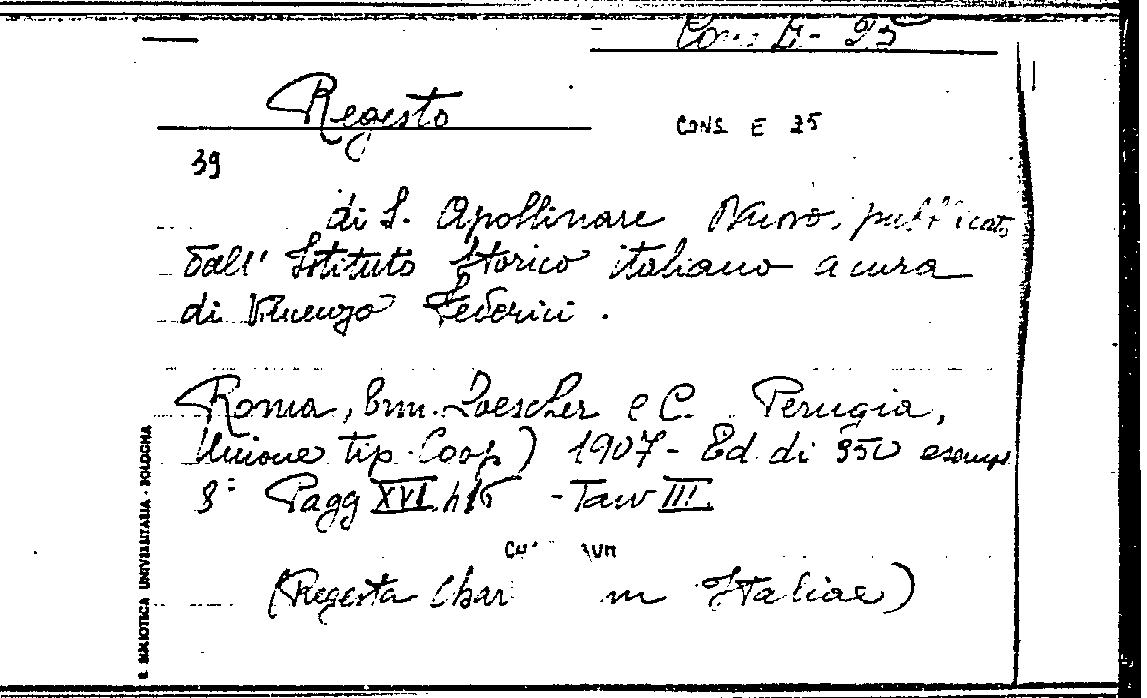 Cons E - 35
Regesto
CONS E 35
39
di S. Apollinare Nuovo, pubblicato
dall' Istituto Storico italiano a cura
di Vincenzo Federici.
Roma, Erm. Loescher e C. Perugia,
Unione tip. Coop) 1907 - Ed di 350 esemp
8° Pagg XVI. 416 - Tav III.
(Regesta Char m Italiae)
R. BIBLIOTECA UNIVERSITARIA - BOLOGNA